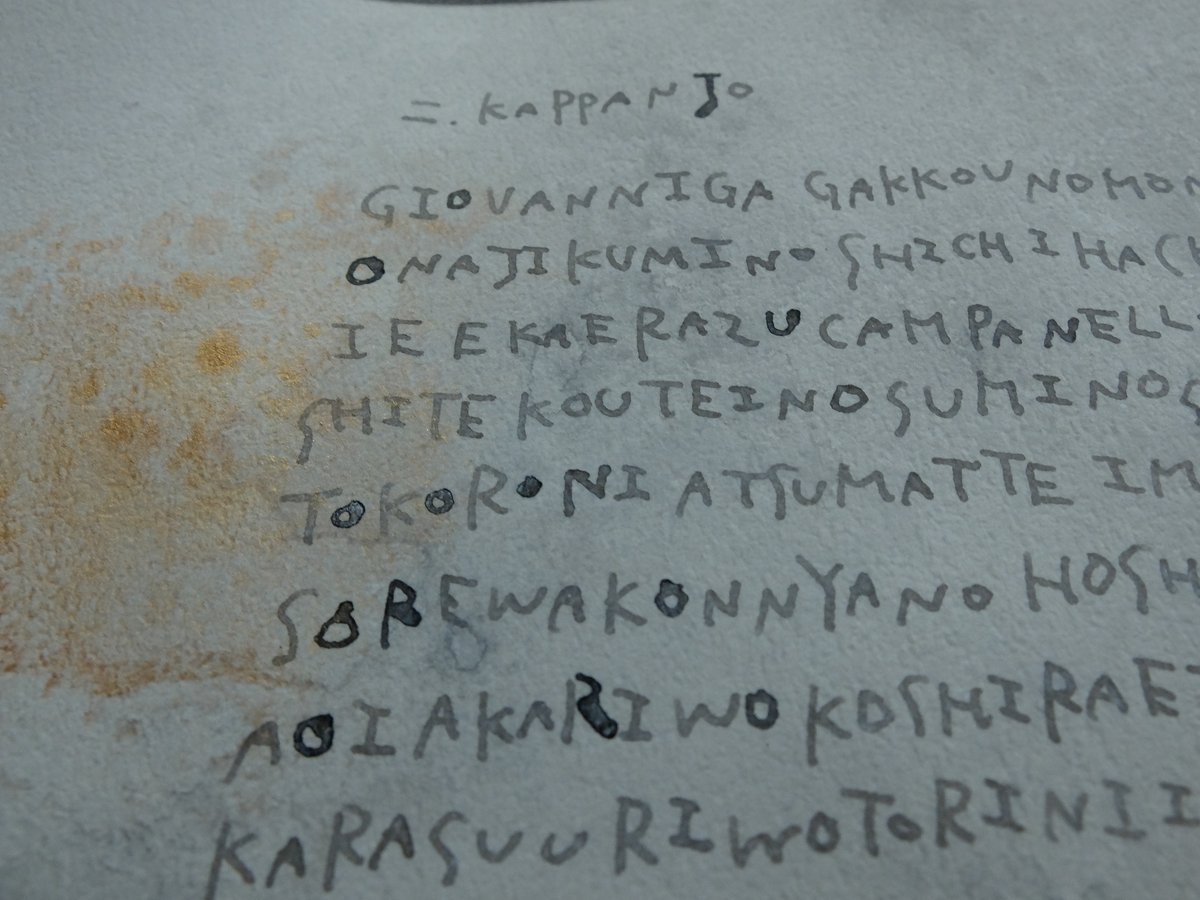 二. KAPPANJO
GIOVANNIGA GAKKOUNOMON
ONAJIKUMINO SHICHIHACH
IEEKAERAZU CAMPANELL
SHITE KOUTEINOSUMINOS
TOKORONI ATSUMATTE IM
SOREWAKONNYANO HOSH
AOIAKARIWO KOSHIRAE
KARASUURIWOTORINII